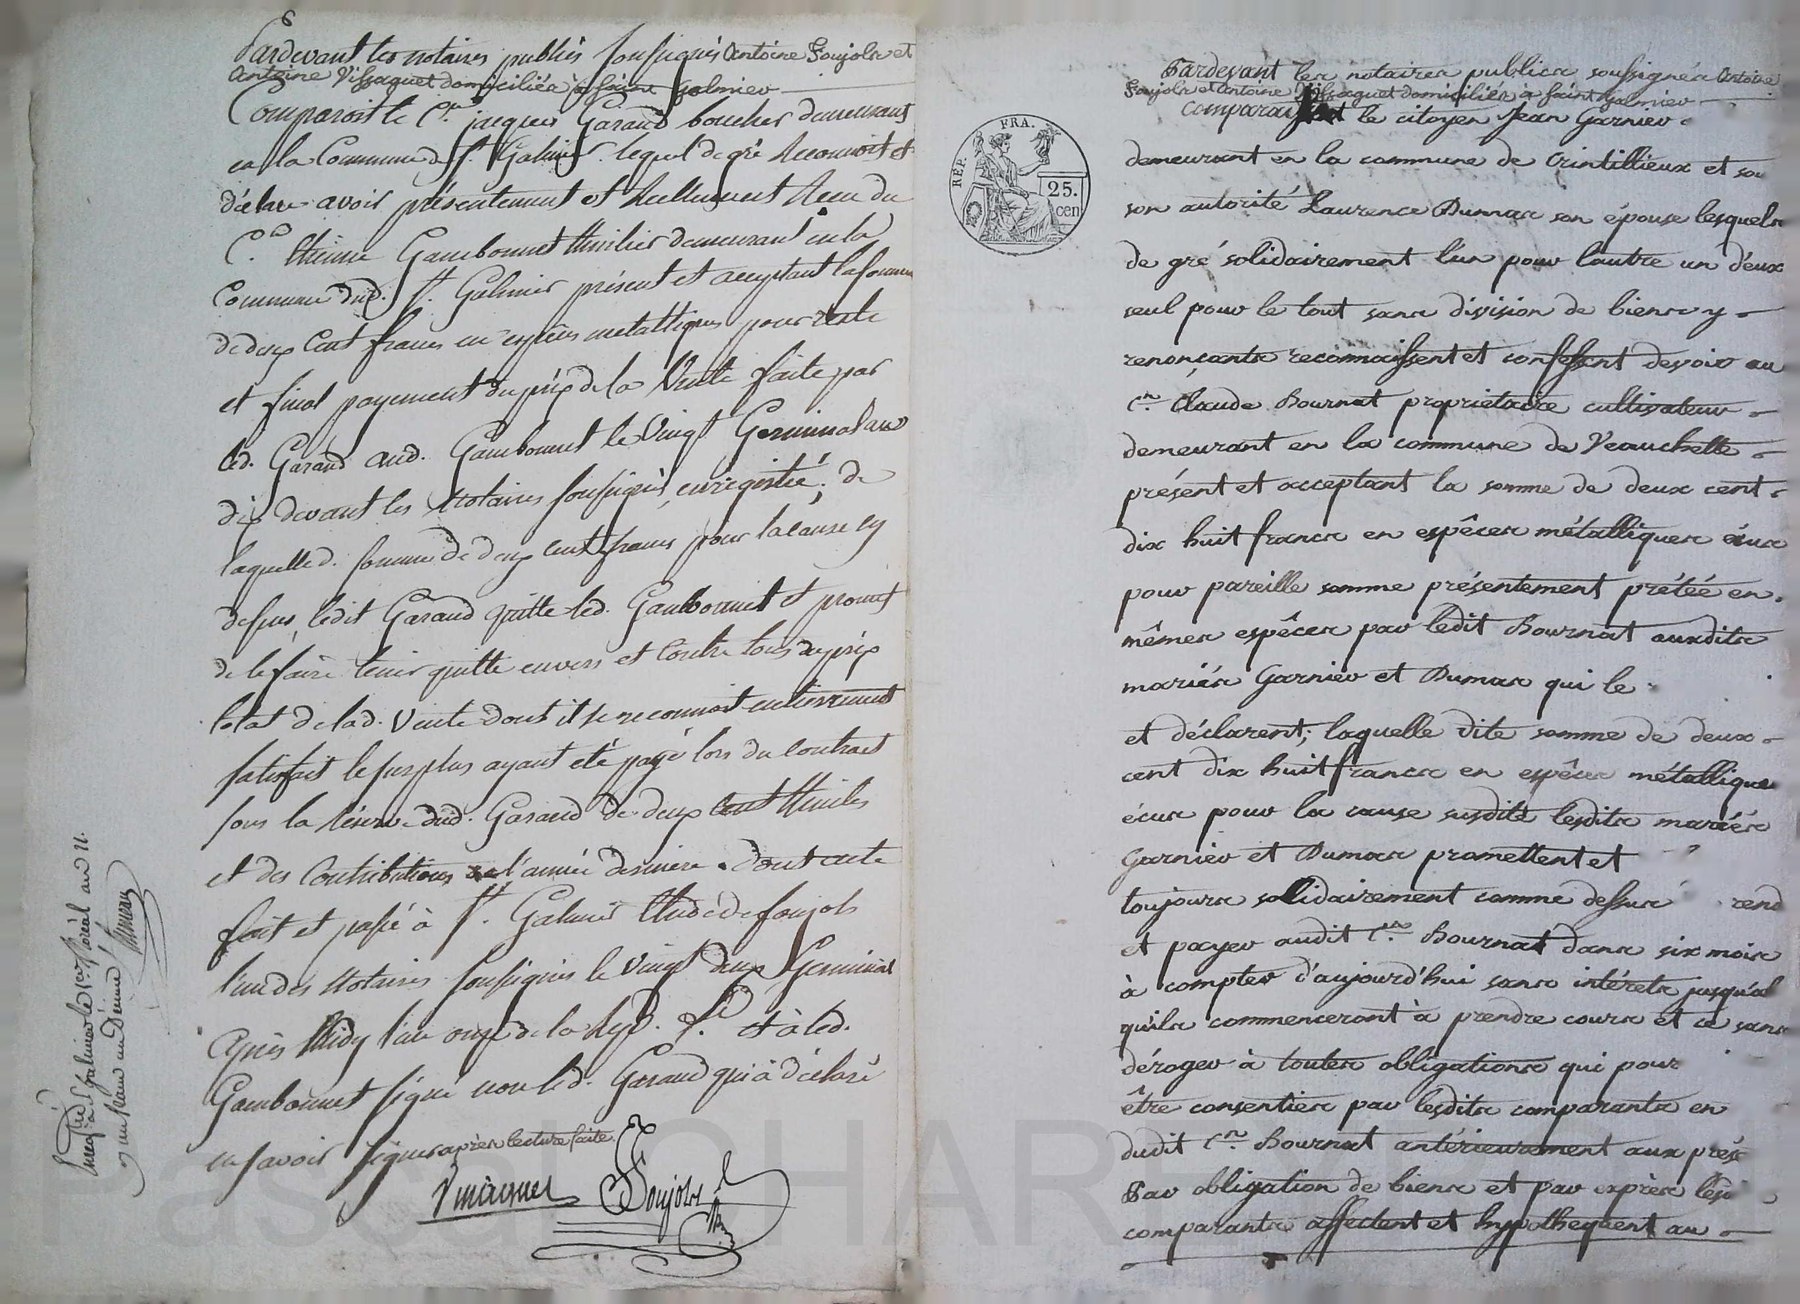 Pardevant les notaires publics soussignés Antoine Foujols et
Antoine Vissaguet domiciliés à saint Galmier
Comparoit le Cen. jacques Garand boucher demeurant
en la Commune de St. Galmier lequel de gré Reconnoit et
déclare avoir présentement et Reellement Recu du
Cen. Etienne Gambonnet thuilier demeurant en la
Commune dud. St. Galmier présent et acceptant la somme
de deux Cent francs en espèces metalliques pour reste
et final payement du prix de la Vente faite par
led. Garand aud. Gambonnet le Vingt Germinal an
dix devant les Notaires soussignés, enregistré; de
laquelle d. somme de deux cent francs pour la cause cy
dessus ledit Garand quitte led. Gambonnet et promet
de le faire tenir quitte envers et Contre tous du prix
total de lad. Vente dont il se reconnoit entièrement
satisfait le surplus ayant été payé lors du contract
sous la réserve dud. Garand de deux Cent thuiles
et des Contributions de l'année derniere. dont acte
fait et passé à St. Galmier Etude de foujols
l'un des Notaires soussignés le Vingt deux Germinal
Après Midy l'an onze de la Rep. fse et à led.
Gambonnet signé non led. Garand qui à déclaré
ne savoir signer après lecture faite.
Vissaguet Foujols
Enregistré à St Galmier le 1er floréal an 11.
un franc un Décime
REP. FRA.
25. cen
Pardevant les notaires publics soussignés Antoine
Foujols et Antoine Vissaguet domiciliés à saint Galmier
comparaissent le citoyen Jean Garnier
demeurant en la commune de Crintillieux et sou
son autorité Laurence Dumas son épouse lesquels
de gré solidairement l'un pour l'autre un d'eux
seul pour le tout sans division de biens y
renonçants reconnaissent et confessent devoir au
Cen. Claude Bournat propriétaire cultivateur
demeurant en la commune de Veauchette
présent et acceptant la somme de deux cent
dix huit francs en espêces métalliques écus
pour pareille somme présentement prétée en
mêmes espêces par ledit Bournat auxdits
mariés Garnier et Dumas qui le
et déclarent; laquelle dite somme de deux
cent dix huit francs en espêces métalliques
écus pour la cause susdite lesdits mariés
Garnier et Dumas promettent et
toujours solidairement comme dessus rend
et payer audit Cen. Bournat dans six mois
à compter d'aujourd'hui sans intérets jusqu'al
qu'ils commenceront à prendre cours et ce sans
déroger à toutes obligations qui pour
être consenties par lesdits comparants en
dudit Cen. Bournat antérieurement aux prés
Par obligation de biens et par exprès lesd
comparants affectent et hypothequent au